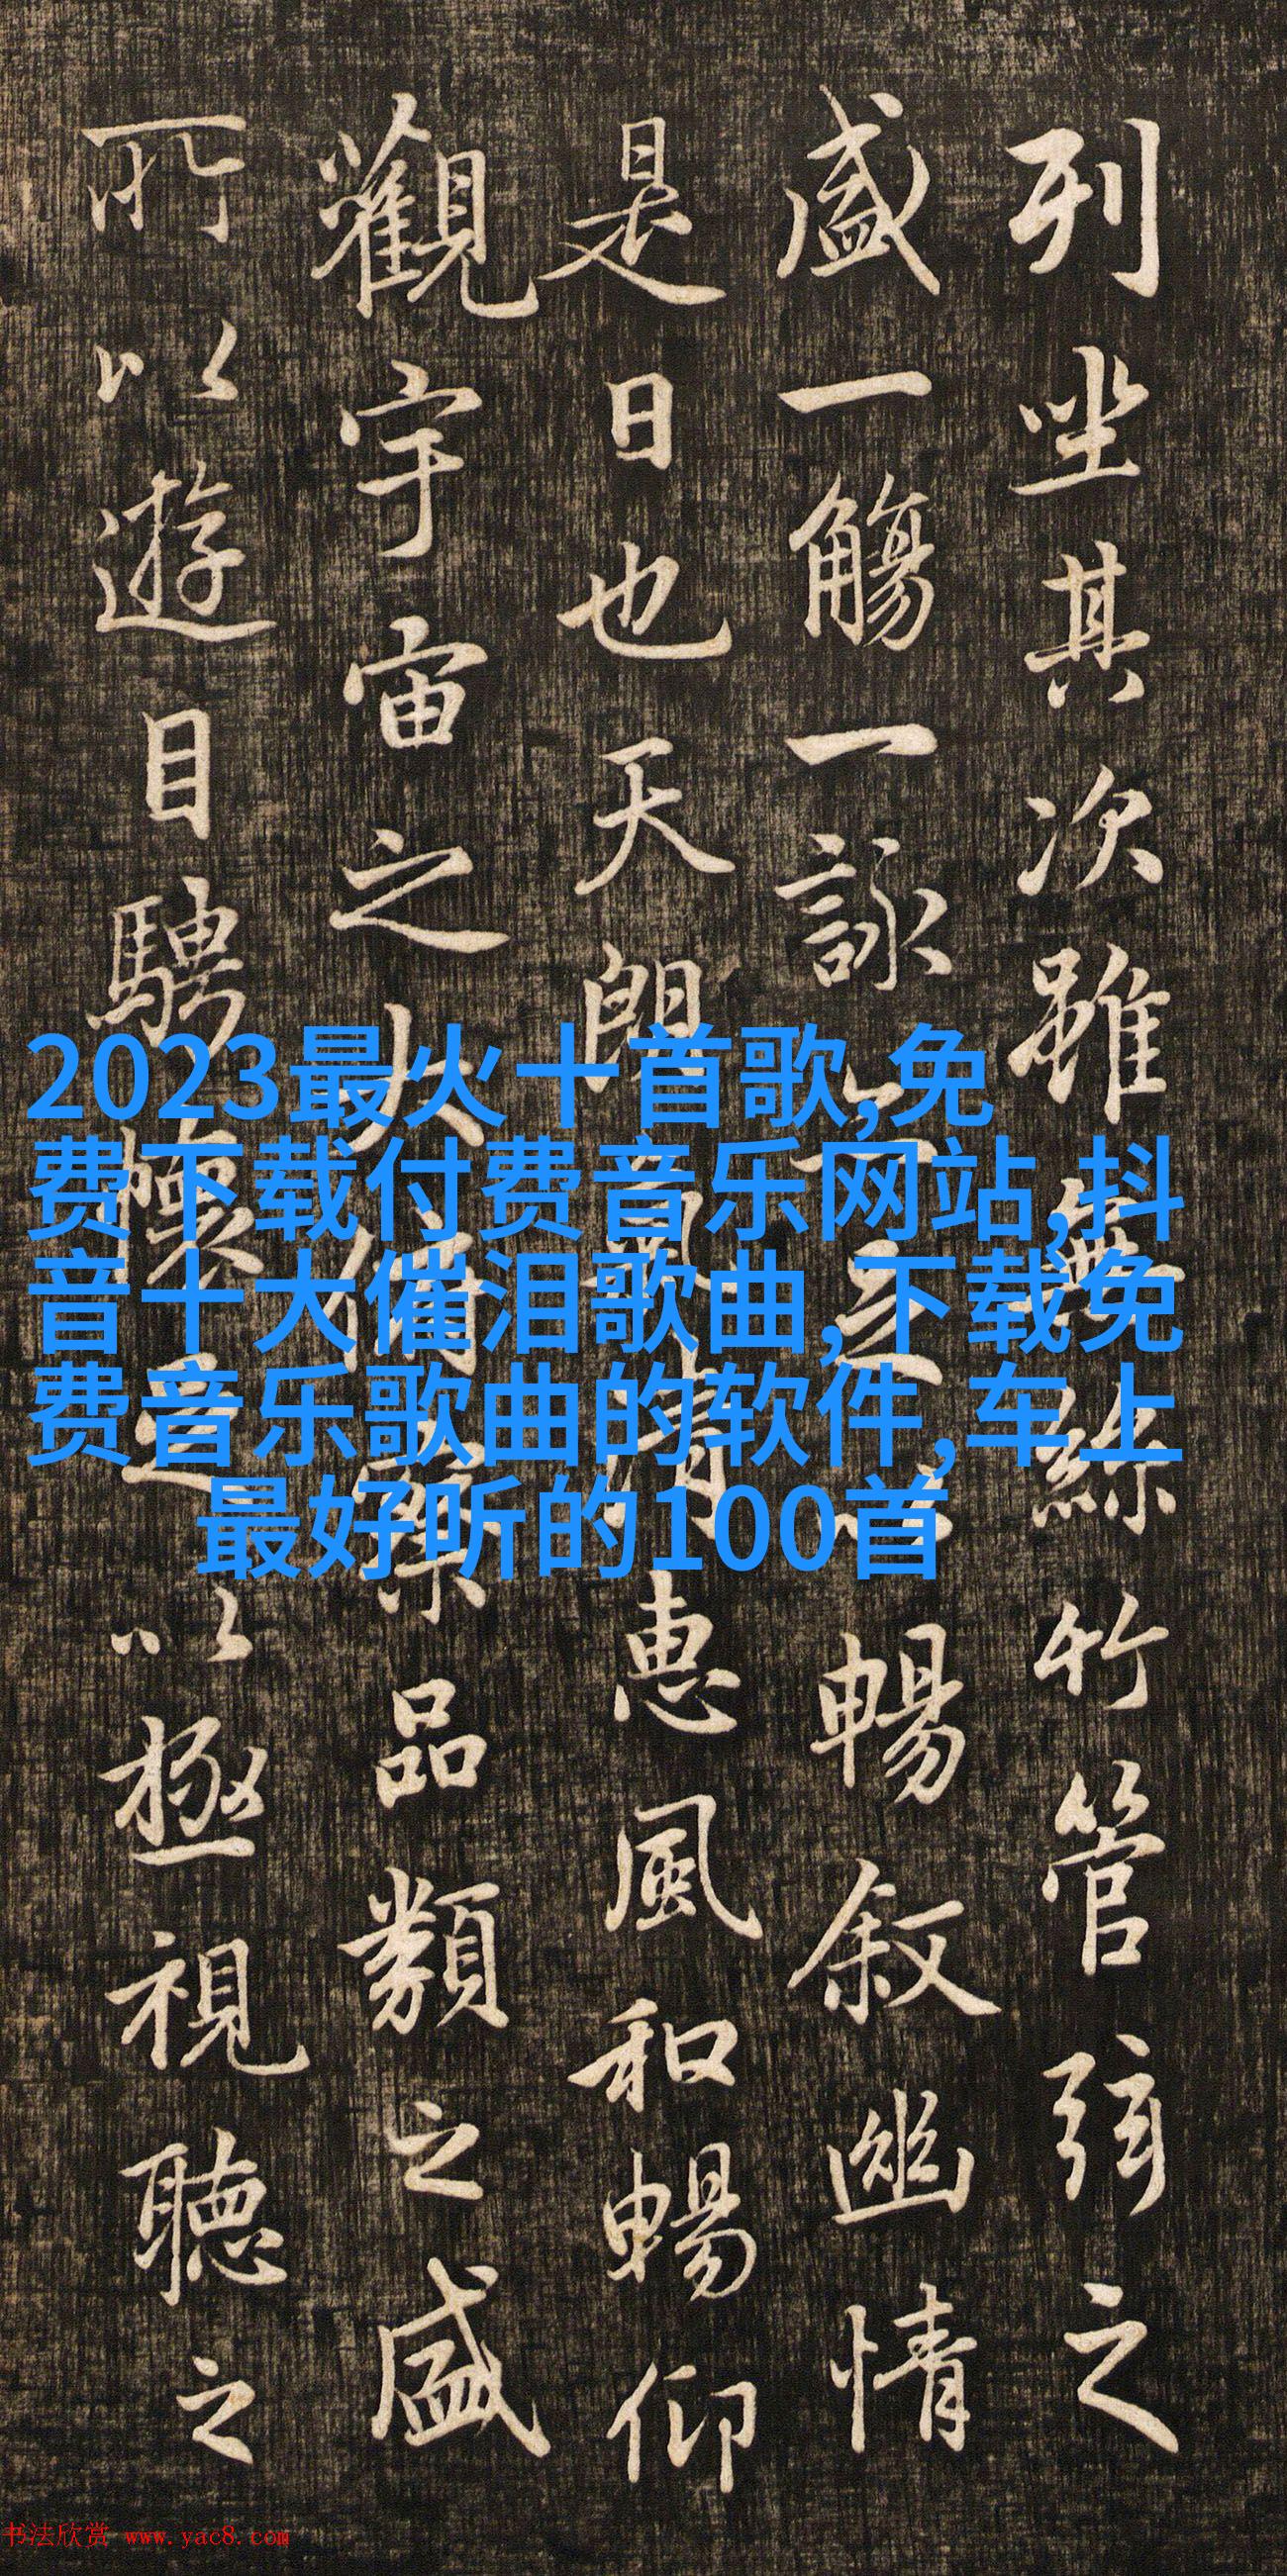 列坐其次雖無絲竹管弦之
盛一觴一詠亦足以暢叙幽情
是日也天朗氣清惠風和暢仰
觀宇宙之大俯察品類之盛
所以遊目騁懷足以極視聽之
2023最火十首歌,免
费下载付费音乐网站,抖
音十大催泪歌曲,下载免
费音乐歌曲的软件,车上
最好听的100首
书法欣赏 www.yac8.com